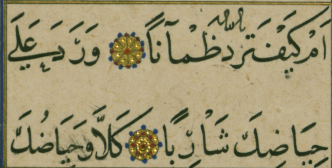 اَمْ كَيْفَ تَرُدُّ ظَمْآنًا وَرَدَ عَلَى
حِيَاضِكَ شَارِبًا كَلَّا وَحِيَاضُكَ